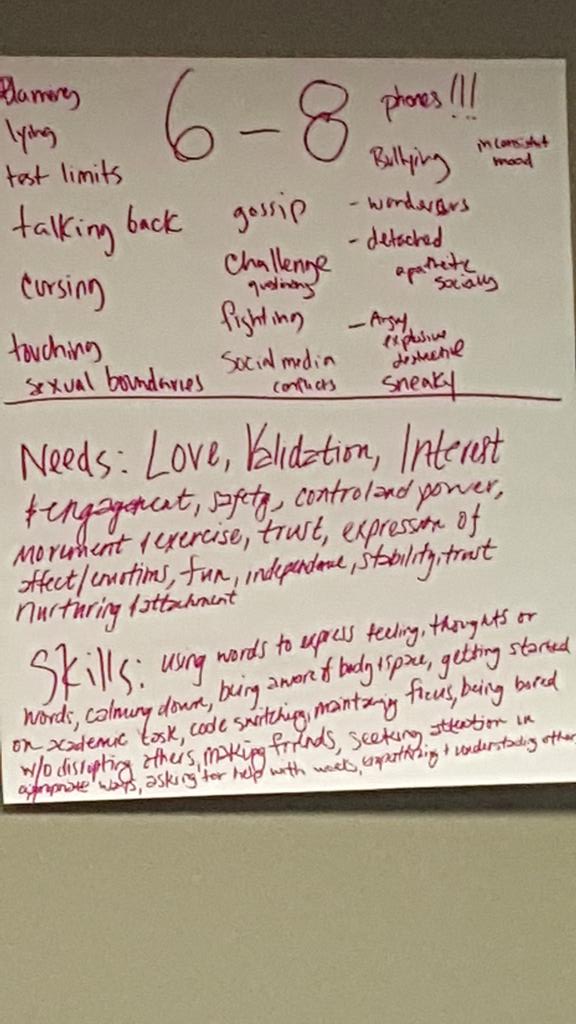 6 - 8
Blaming
lying
test limits
talking back
cursing
touching
sexual boundaries
gossip
challenge
fighting
Social media
conflicts
phones!!!
Bullying
inconsistent
mood
- detached
apathetic
socially
- Angry
explosive
destructive
sneaky
Needs: Love, Validation, Interest
& engagement, safety, control and power,
movement & exercise, trust, expression of
affect/emotions, fun, independence, stability, trust
nurturing & attachment
Skills: using words to express feeling, thoughts or
words, calming down, being aware of body & space, getting started
on academic task, code switching, maintaining focus, being bored
w/o disrupting others, making friends, seeking attention in
appropriate ways, asking for help with work, empathizing & understanding other